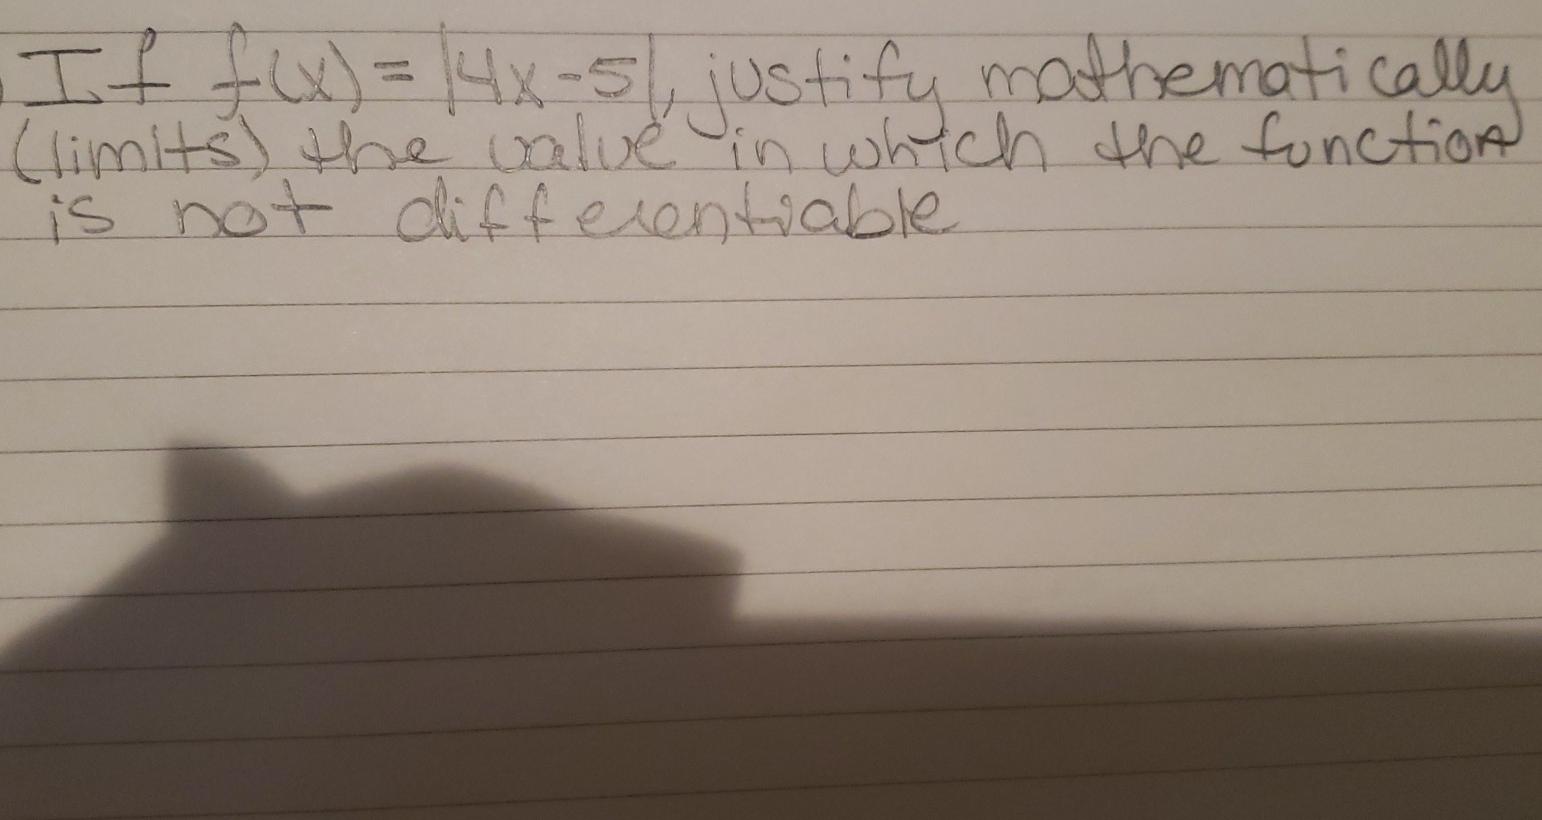 If f(x) = |4x-5|, justify mathematically
(limits) the value in which the function
is not differentiable